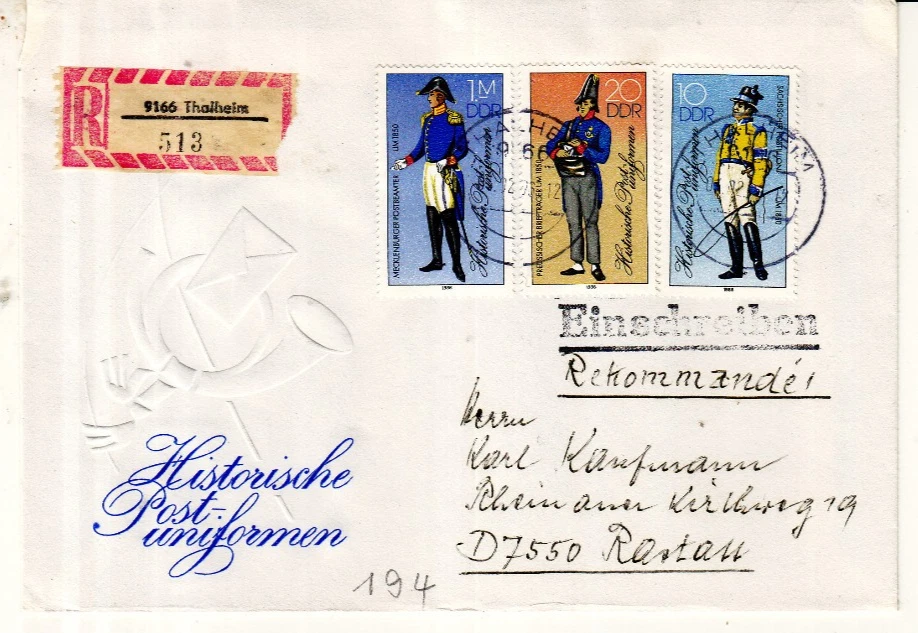 R
9166 Thalheim
513
1M
DDR
MECKLENBURGER POSTBEAMTER UM 1850
Historische Post-
uniformen
1986
20
DDR
PREUSSISCHER BRIEFTRÄGER UM 1850
Historische Post-
uniformen
1986
10
DDR
Historische Post-
uniformen
1986
9166
12
Einschreiben
Rekommandé!
Herrn
Karl Kaufmann
Rheinauer Kirchweg 19
D7550 Rastatt
Historische
Post-
uniformen
194